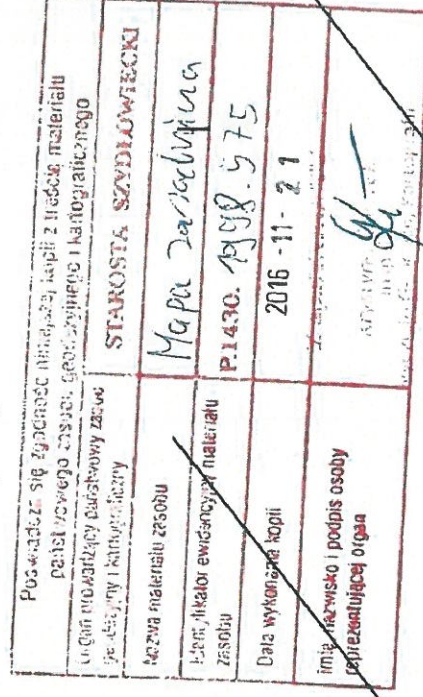 Poświadcza się zgodność niniejszej kopii z treścią materiału
państwowego zasobu geodezyjnego i kartograficznego
Organ prowadzący państwowy zasób
geodezyjny i kartograficzny
STAROSTA SZYDŁOWIECKI
Nazwa materiału zasobu
Mapa zasadnicza
Identyfikator ewidencyjny materiału
zasobu
P.1430. 1998.575
Data wykonania kopii
2016 -11- 21
imię, nazwisko i podpis osoby
reprezentującej organ